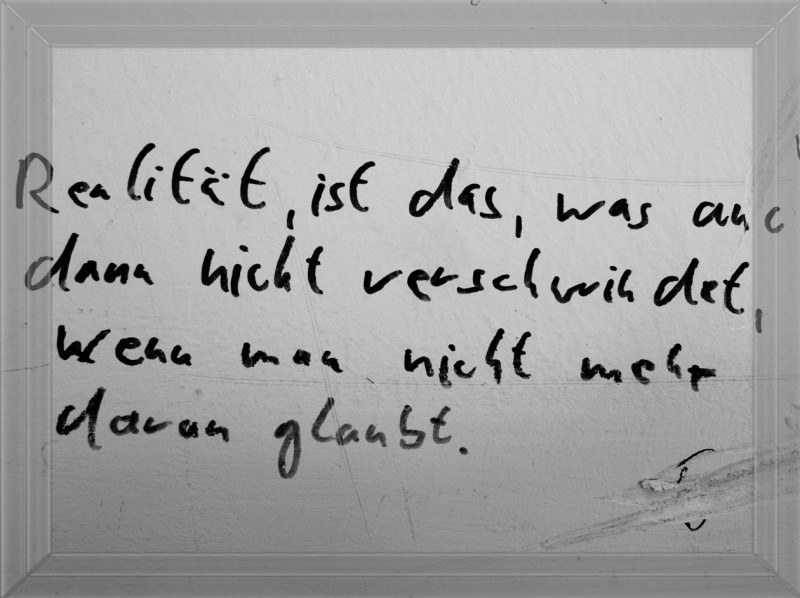 Realität, ist das, was auc
dann nicht verschwindet,
wenn man nicht mehr
daran glaubt.